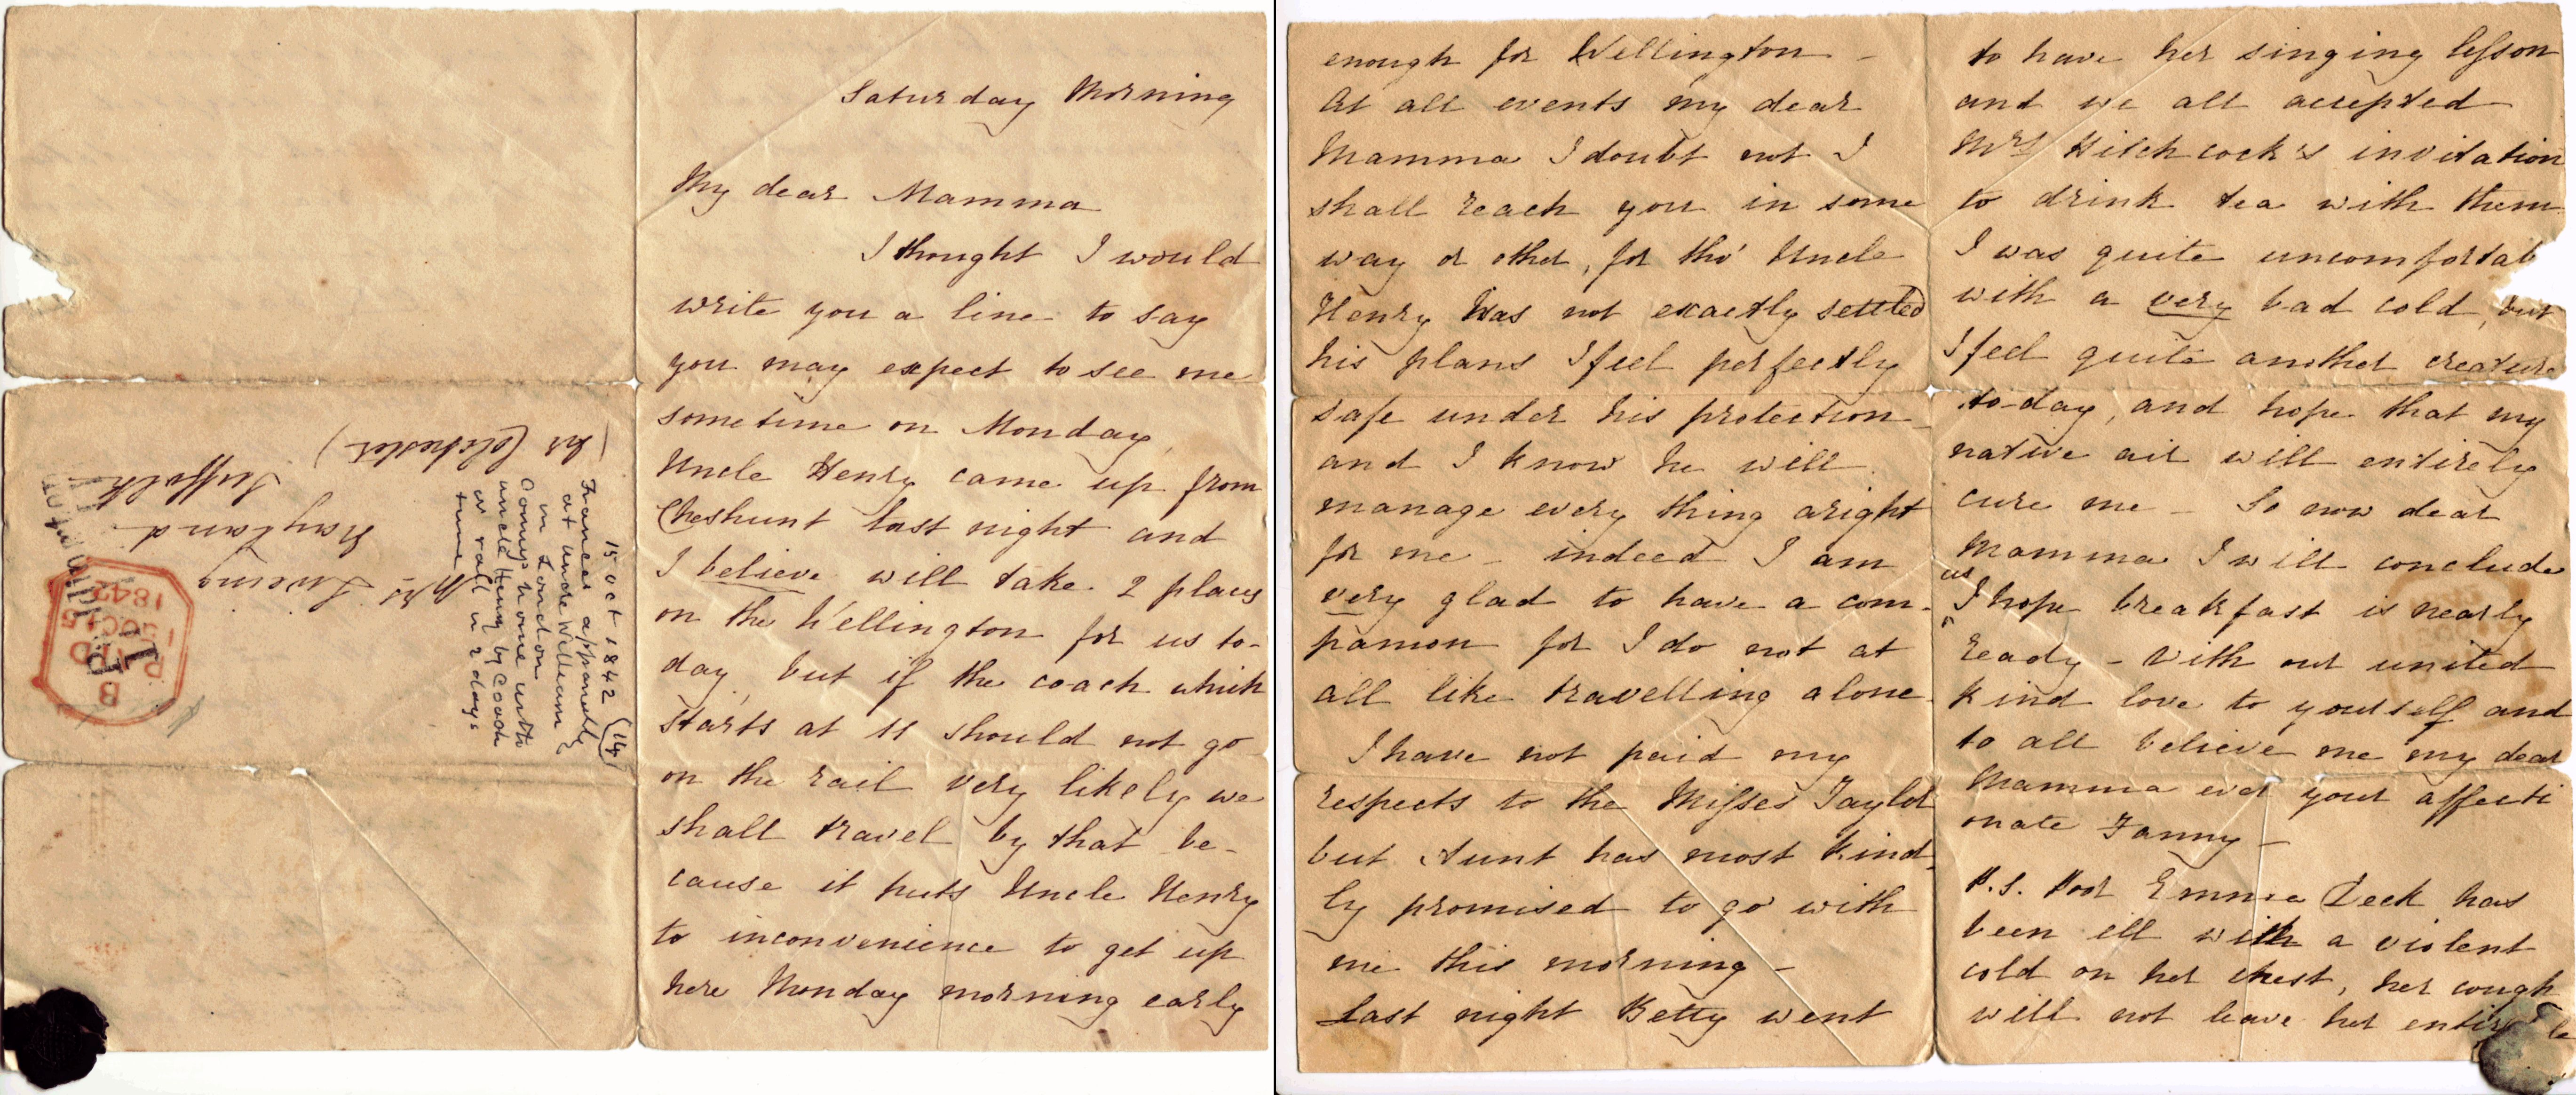 Saturday Morning
My dear Mamma
I thought I would
write you a line to say
you may expect to see me
sometime on Monday,
Uncle Henry came up from
Cheshunt last night and
I believe will take 2 places
on the Wellington for us to-
day, but if the coach which
starts at 11 should not go
on the rail very likely we
shall travel by that be-
cause it puts Uncle Henry
to inconvenience to get up
here Monday morning early
enough for Wellington -
At all events my dear
Mamma I doubt not I
shall reach you in some
way or other, for tho' Uncle
Henry has not exactly settled
his plans I feel perfectly
safe under his protection
and I know he will
manage every thing aright
for me - indeed I am
very glad to have a com-
panion for I do not at
all like travelling alone.
I have not paid my
respects to the Misses Taylor
but Aunt has most kind-
ly promised to go with
me this morning -
Last night Betty went
to have her singing lesson
and we all accepted
Mrs Hitchcock's invitation
to drink tea with them
I was quite uncomfortab
with a very bad cold, but
I feel quite another creature
to-day, and hope that my
native air will entirely
cure me - So now dear
Mamma I will conclude
as I hope breakfast is nearly
ready - With our united
kind love to yourself and
to all believe me my dear
Mamma ever your affecti
onate Fanny -
P.S. Poor Emma Leek has
been ill with a violent
cold on her chest, her cough
will not leave her
Mrs Liveing
Nayland
Suffolk
(by Colchester)
15 Oct 1842 (14)
Frances apparently
at uncle William's
in London
Coming home with
uncle Henry by Coach
or rail in 2 days
time
B
PAID
15OC15
1842